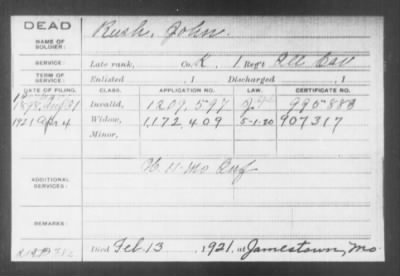 DEAD
NAME OF SOLDIER: Rush, John.
SERVICE: Late rank, Co. K, 1 Reg't Ill Cav
TERM OF SERVICE: Enlisted , 1 Discharged , 1
DATE OF FILING. CLASS. APPLICATION NO. LAW. CERTIFICATE NO.
1898, Aug 31 Invalid, 1209,597 995883
1921 Apr 4 Widow, 1,172,409 5-1-20 907317
Minor,
ADDITIONAL SERVICES: H. 11- Mo Inf
REMARKS:
Died Feb. 13, 1921, at Jamestown, Mo.